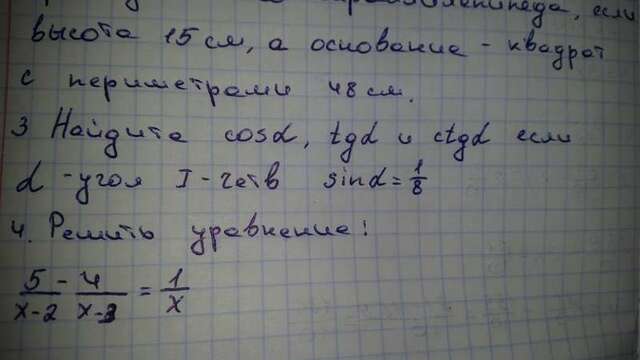 параллелепипеда, если
высота 15 см, а основание - квадрат
с периметрами 48 см.
3 Найдите cosα, tgα и ctgα если
α - угол I - четв sinα = 1/8
4. Решить уравнение!
5/(x-2) - 4/(x-3) = 1/x